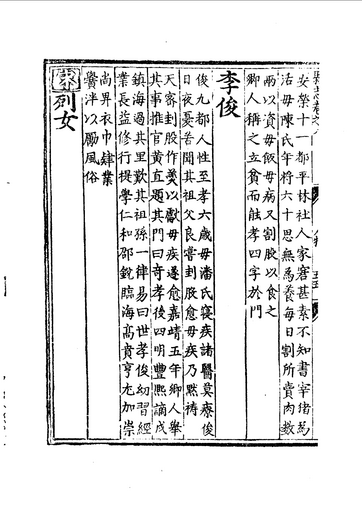 安榮十一都平林社人家窘甚素不知書宰猪為
活母陳氏年將六十思無為養每日割所賣肉數
兩以資母飯母病又割股以食之
鄉人稱之立貧而能孝四字於門
李俊
俊九都人性至孝六歲母潘氏寢疾諸醫莫療俊
日夜憂苦聞其祖父良嘗刲股愈母疾乃黙禱
天密刲股作羹以獻母疾遂愈嘉靖五年鄉人舉
其事推官黄直題其門曰奇孝後四明豐熙謫戍
鎮海過其里歎其祖孫一律易曰世孝俊幼習經
業長益修行提學仁和邵銳臨海高賁亨尤加崇
尚畀衣巾肄業
黌泮以勵風俗
列女